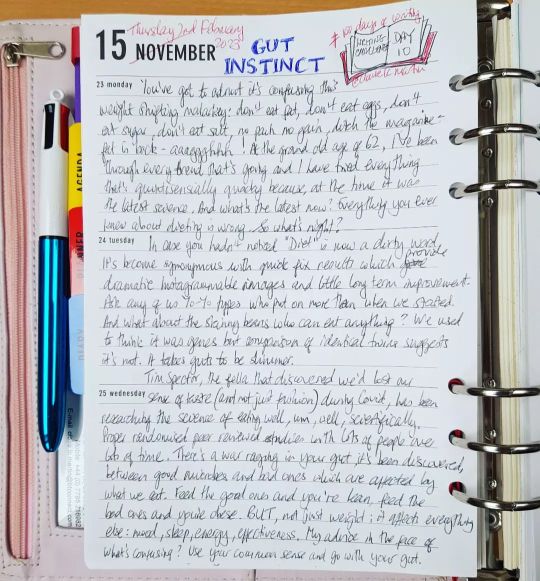 Thursday 2nd February 2023
15 NOVEMBER
GUT
INSTINCT
# 100 days of writing
WRITING CHALLENGE
DAY 10
23 monday
You've got to admit it's confusing this
weight shifting malarkey: don't eat fat, don't eat eggs, don't
eat sugar, don't eat salt, no pain no gain, ditch the margarine -
fat is back - aaaggghhhh! At the grand old age of 62, I've been
through every trend that's going and I have tried everything
that's quintessentially quacky because, at the time it was
the latest science. And what's the latest now? Everything you ever
knew about dieting is wrong. So what's right?
24 tuesday
In case you hadn't noticed "Diet" is now a dirty word.
It's become synonymous with quick fix results which provide
dramatic instagrammable images and little long term improvement.
Ask any of us yo-yo types who put on more than when we started.
And what about the skinny beans who can eat anything? We used
to think it was genes but comparison of identical twins suggests
it's not. It takes guts to be slimmer.
Tim Spector, the fella that discovered we'd lost our
25 wednesday
sense of taste (and not just fashion) during Covid, has been
researching the science of eating well, um, well, scientifically.
Proper randomised peer reviewed studies with lots of people over
lots of time. There's a war raging in your gut, it's been discovered,
between good microbes and bad ones which are affected by
what we eat. Feed the good ones and you're lean, feed the
bad ones and you're obese. BUT, not just weight: it affects everything
else: mood, sleep, energy, effectiveness. My advice in the face of
what's confusing? Use your common sense and go with your gut.
AGENDA
DIARY